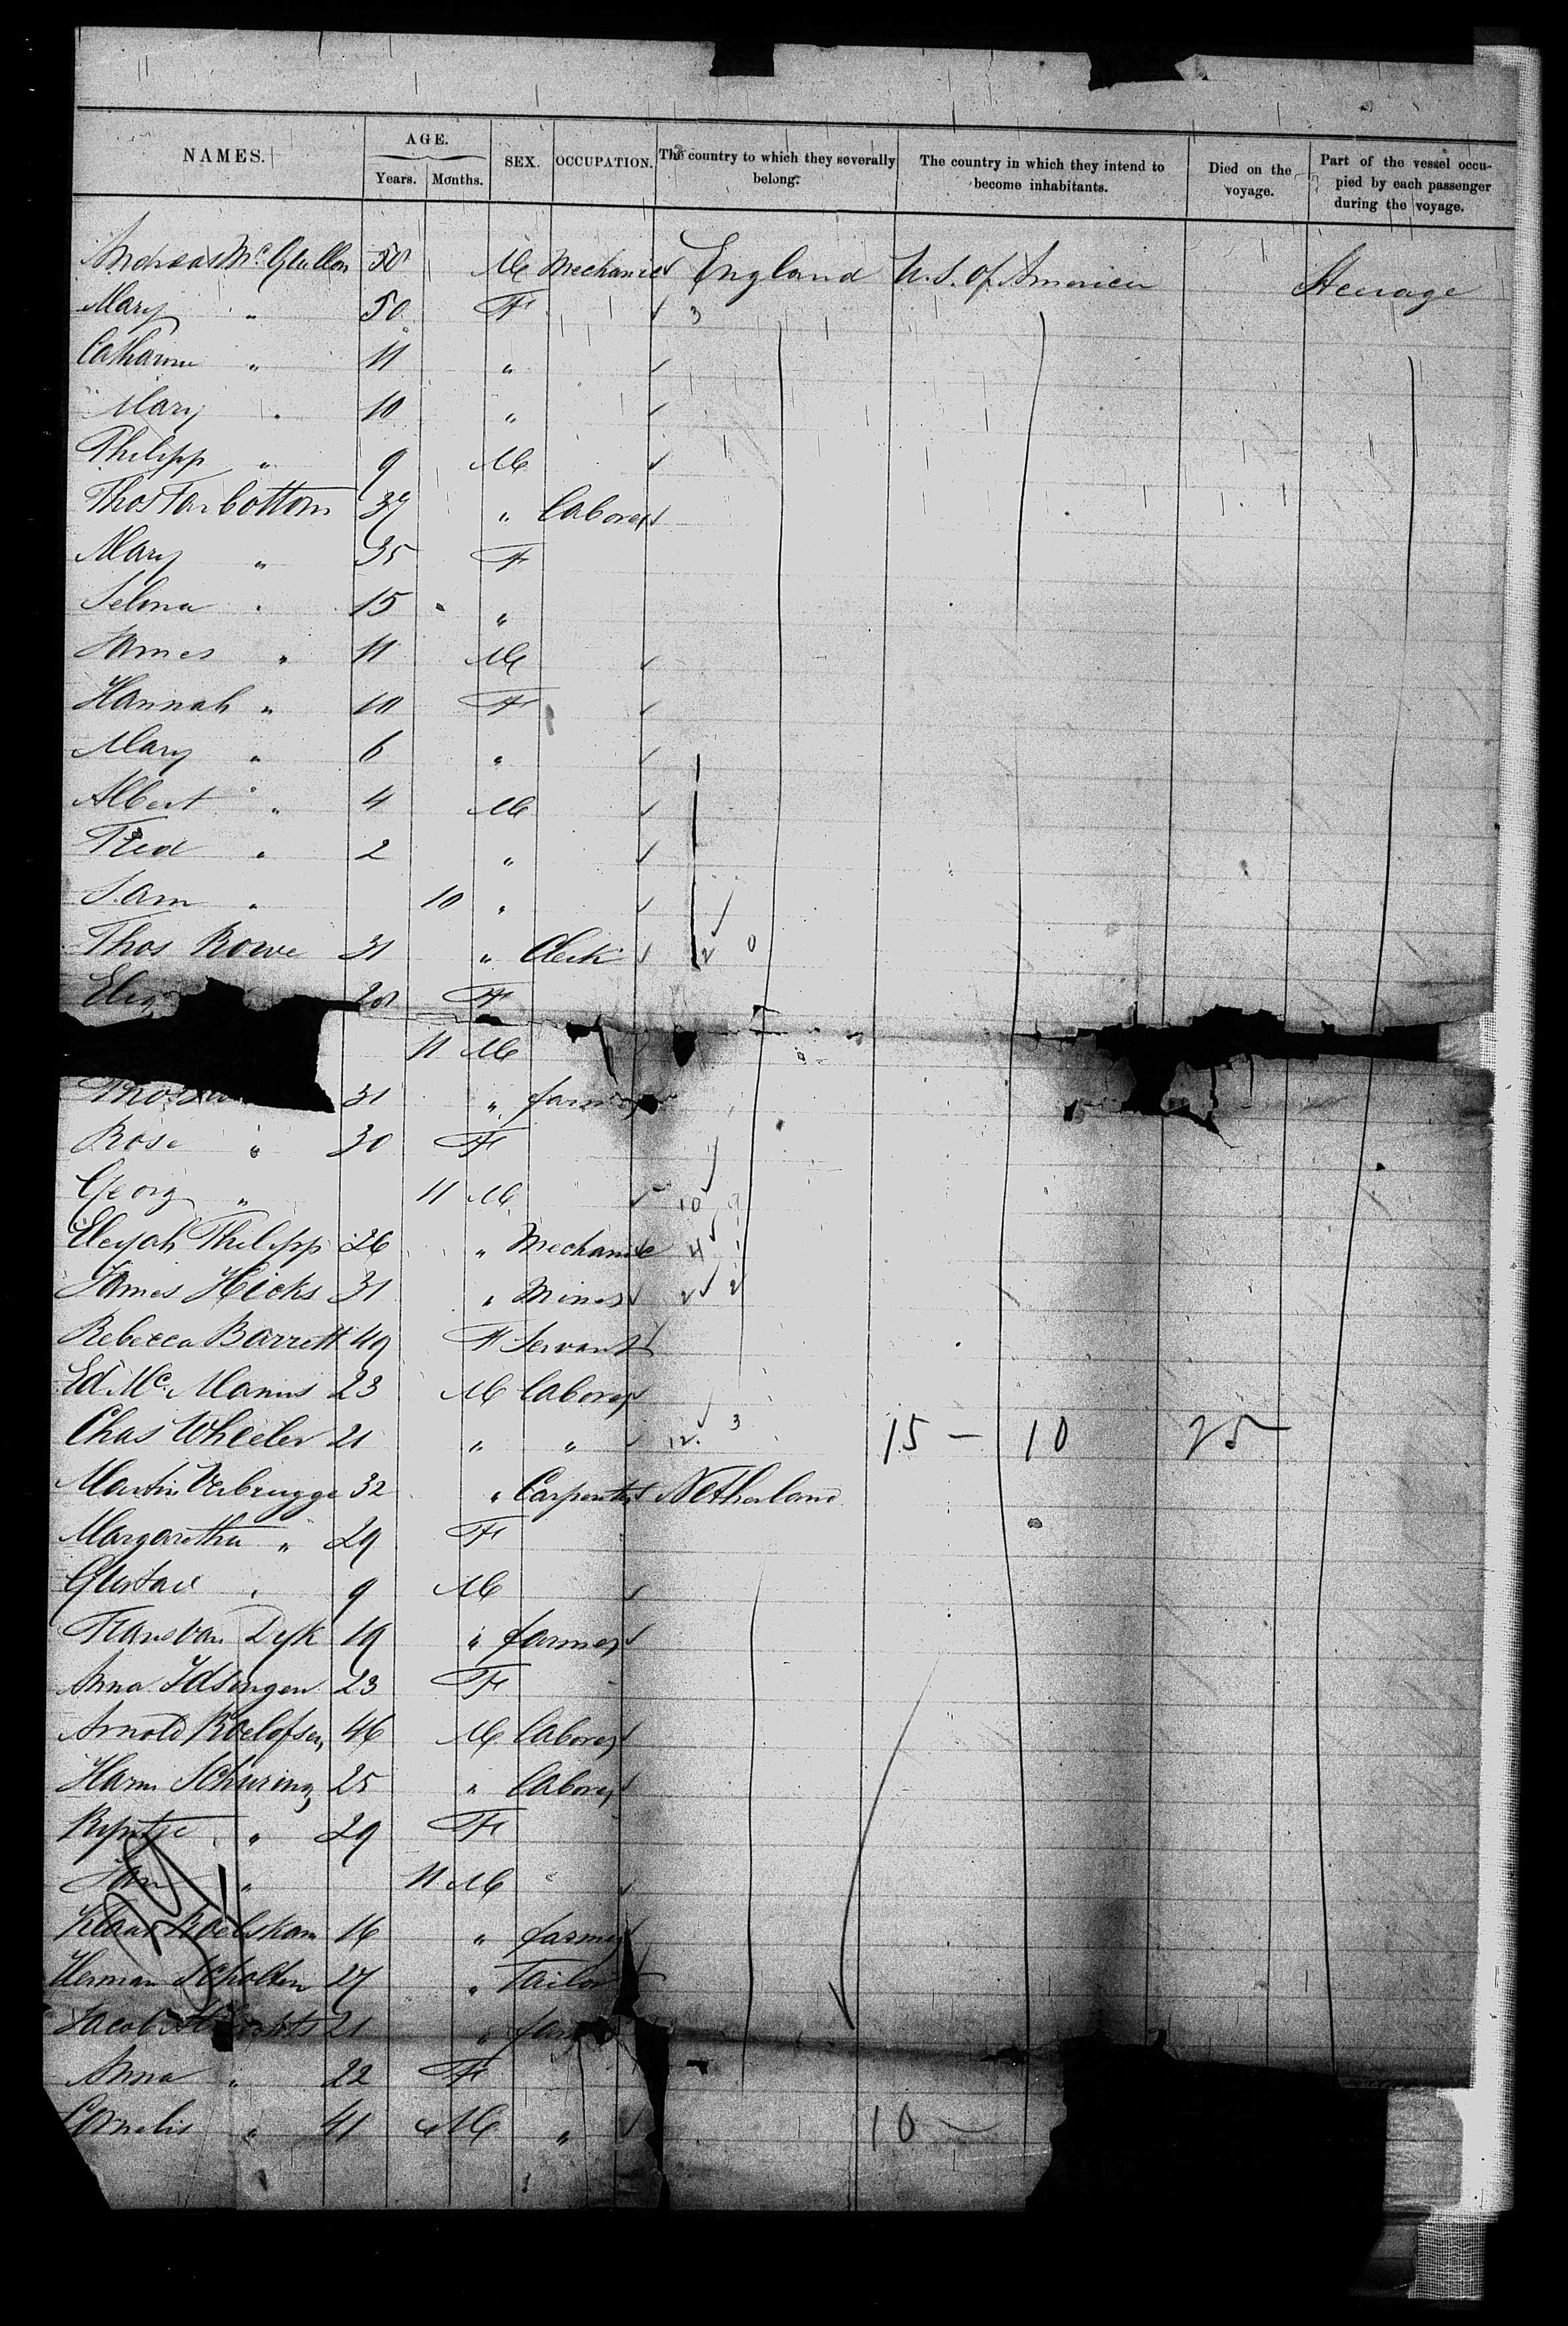 NAMES. AGE. Years. Months. SEX. OCCUPATION. The country to which they severally belong. The country in which they intend to become inhabitants. Died on the voyage. Part of the vessel occupied by each passenger during the voyage.
Andreas Mc 50 M Mechanic England U.S. of America Steerage
Mary " 50 F 3
Catharine " 11 "
Mary " 10 "
Philipp " 9 M
Thos Tarbottom 37 " Laborer
Mary " 35 F
Selina " 15 "
James " 11 M
Hannah " 10 F
Mary " 6 "
Albert " 4 M
Fred " 2 "
Sam " 10 "
Thos Rowe 31 " Clerk 2 0
F
11 M
Thos 31 " farmer
Rose " 30 F
Georg " 11 M 10 9
Elijah Philipp 26 " Mechanic 4 1
James Hicks 31 " Miner 2 2
Rebecca Barrett 49 F Servant
Ed Mc Manus 23 M Laborer
Chas Wheeler 21 " " 12. 3 15 — 10 25
Martin Verbrugge 32 " Carpenter Netherland
Margaretha " 29 F
Gustave " 9 M
Frans van Dyk 19 " farmer
Anna Idsingen 23 F
Arnold Roelofsen 46 M Laborer
Harm Schuring 25 " Laborer
" 29 F
Jan " 11 M
Klaas 16 " farmer
Herman Scholten 27 " Tailor
Jacob 21 " farmer
Anna " 22 F
Cornelis " 41 M " 10 —